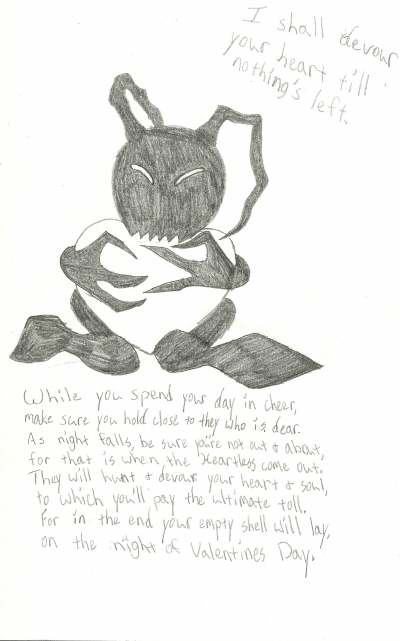 I shall devour
your heart till
nothing's left.
While you spend your day in cheer,
make sure you hold close to they who is dear.
As night falls, be sure you're not out & about,
for that is when the Heartless come out.
They will hunt & devour your heart & soul,
to which you'll pay the ultimate toll.
For in the end your empty shell will lay,
on the night of Valentines Day.